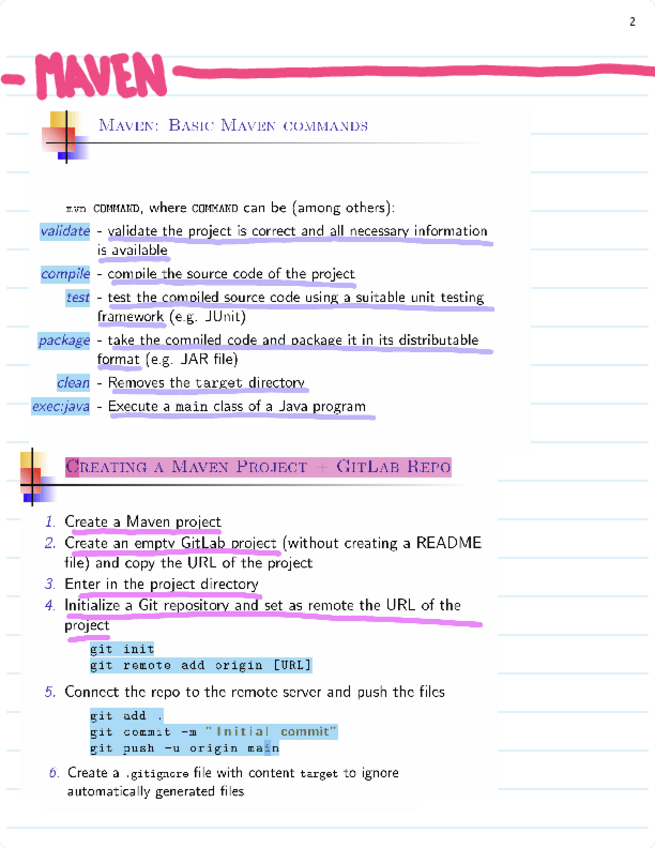 2
- MAVEN
MAVEN: BASIC MAVEN COMMANDS
mvn COMMAND, where COMMAND can be (among others):
validate - validate the project is correct and all necessary information
is available
compile - compile the source code of the project
test - test the compiled source code using a suitable unit testing
framework (e.g. JUnit)
package - take the compiled code and package it in its distributable
format (e.g. JAR file)
clean - Removes the target directory
exec:java - Execute a main class of a Java program
CREATING A MAVEN PROJECT + GITLAB REPO
1. Create a Maven project
2. Create an empty GitLab project (without creating a README
file) and copy the URL of the project
3. Enter in the project directory
4. Initialize a Git repository and set as remote the URL of the
project
git init
git remote add origin [URL]
5. Connect the repo to the remote server and push the files
git add .
git commit -m "Initial commit"
git push -u origin main
6. Create a .gitignore file with content target to ignore
automatically generated files